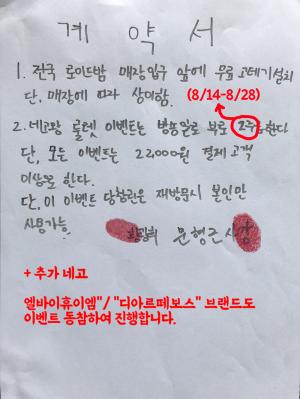 계 약 서
1. 전국 로이드밤 매장입구 앞에 무료 고데기설치
단, 매장에 따라 상이함.
(8/14-8/28)
2. 네고왕 룰렛 이벤트는 방송일로 부터 2주 한다
단, 모든 이벤트는 22000원 결제 고객
이상으로 한다.
단, 이 이벤트 당첨권은 재방문시 본인만
사용가능.
황광희 문형근 사장
+ 추가 네고
엘바이휴이엠"/ "디아르떼보스" 브랜드도
이벤트 동참하여 진행합니다.